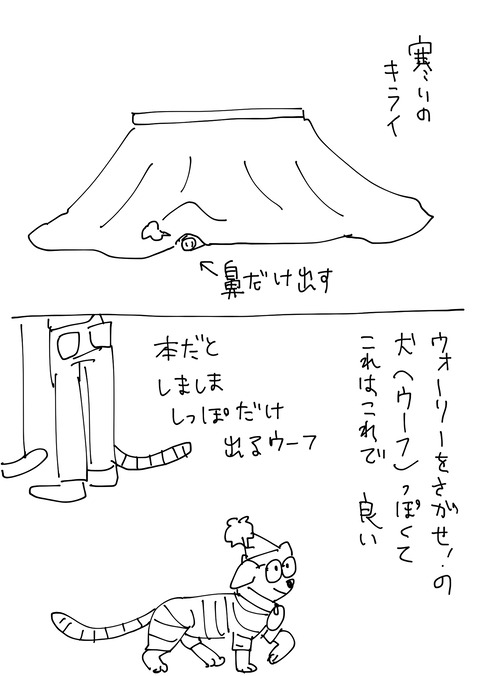 寒いの
キライ
鼻だけ出す
ウォーリーをさがせ！の
犬（ウーフ）っぽくて
これはこれで 良い
本だと
しましま
しっぽだけ
出るウーフ